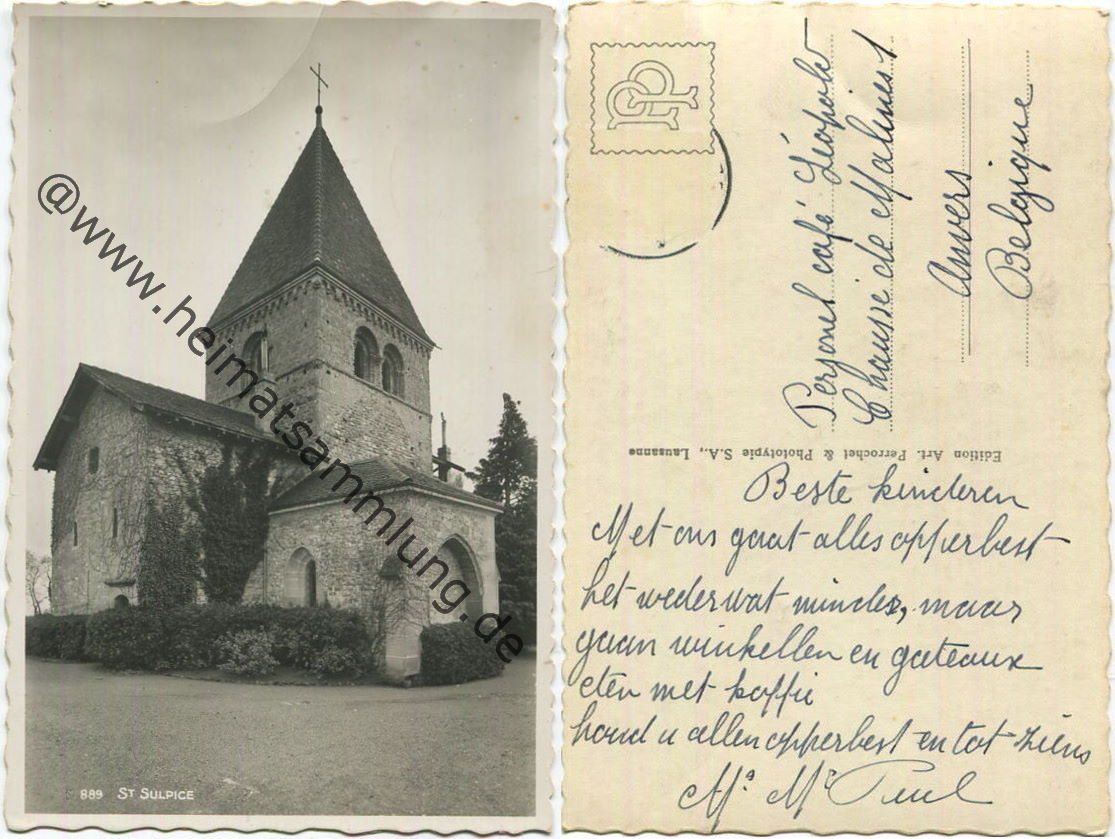 @www.heimatsammlung.de
889 ST SULPICE
Personel café Léopold
Chausse de Malines 1
Anvers
Belgique
Edition Art. Perrochet & Phototypie S.A., Lausanne
Beste kinderen
Met ons gaat alles opperbest
het weder wat minder, maar
gaan winkellen en gateaux
eten met koffie
houd u allen opperbest en tot ziens